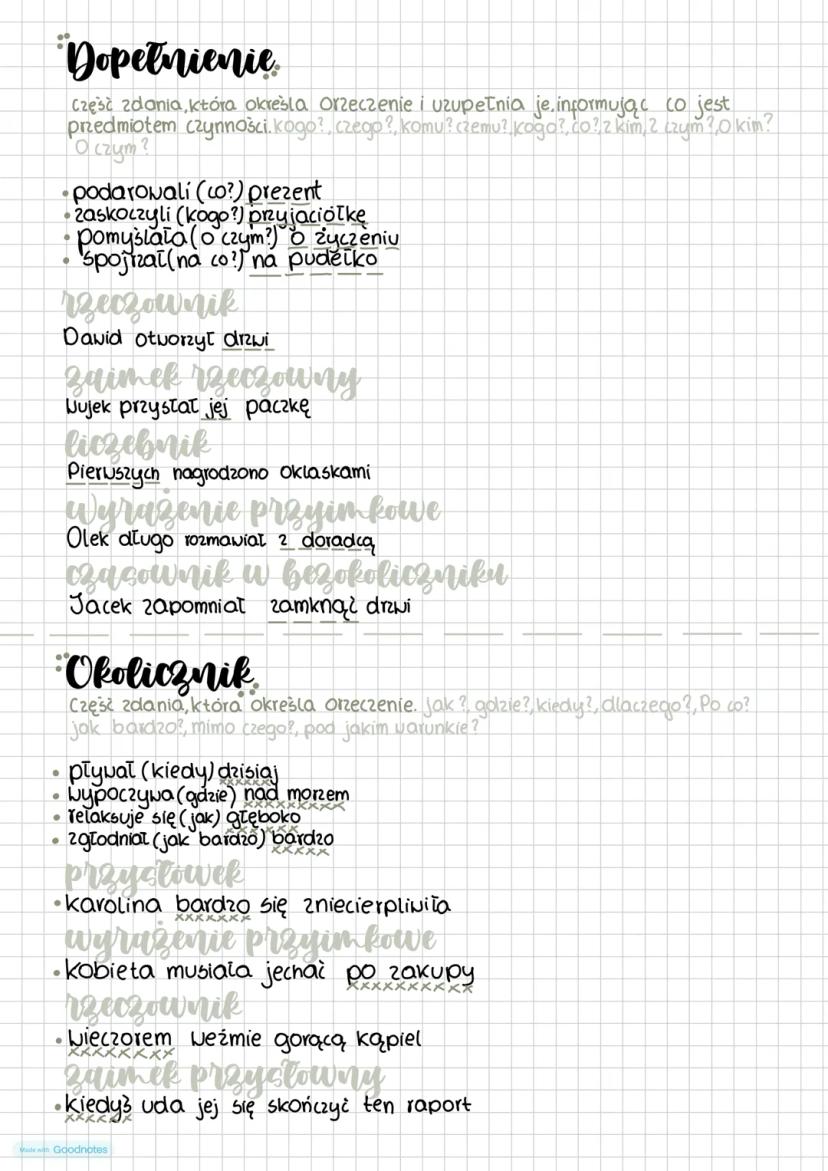 Dopełnienie
część zdania, która określa orzeczenie i uzupełnia je, informując co jest
przedmiotem czynności. kogo?, czego?, komu? czemu?, kogo?, co?, z kim, z czym?, o kim?
O czym?
• podarowali (co?) prezent
• zaskoczyli (kogo?) przyjaciółkę
• pomyślała (o czym?) o życzeniu
• spojrzał (na co?) na pudełko
rzeczownik
Dawid otworzył drzwi
zaimek rzeczowny
Wujek przysłał jej paczkę
liczebnik
Pierwszych nagrodzono oklaskami
wyrażenie przyimkowe
Olek długo rozmawiał z doradcą
czasownik w bezokoliczniku
Jacek zapomniał zamknąć drzwi
Okolicznik
Część zdania, która określa orzeczenie. jak?, gdzie?, kiedy?, dlaczego?, Po co?
jak bardzo?, mimo czego?, pod jakim warunkie?
• pływał (kiedy) dzisiaj
• wypoczywa (gdzie) nad morzem
• relaksuje się (jak) głęboko
• zgłodniał (jak bardzo) bardzo
przysłówek
• karolina bardzo się zniecierpliwiła
wyrażenie przyimkowe
• kobieta musiała jechać po zakupy
rzeczownik
• wieczorem weźmie gorącą kąpiel
zaimek przysłowny
• kiedyś uda jej się skończyć ten raport
Made with Goodnotes